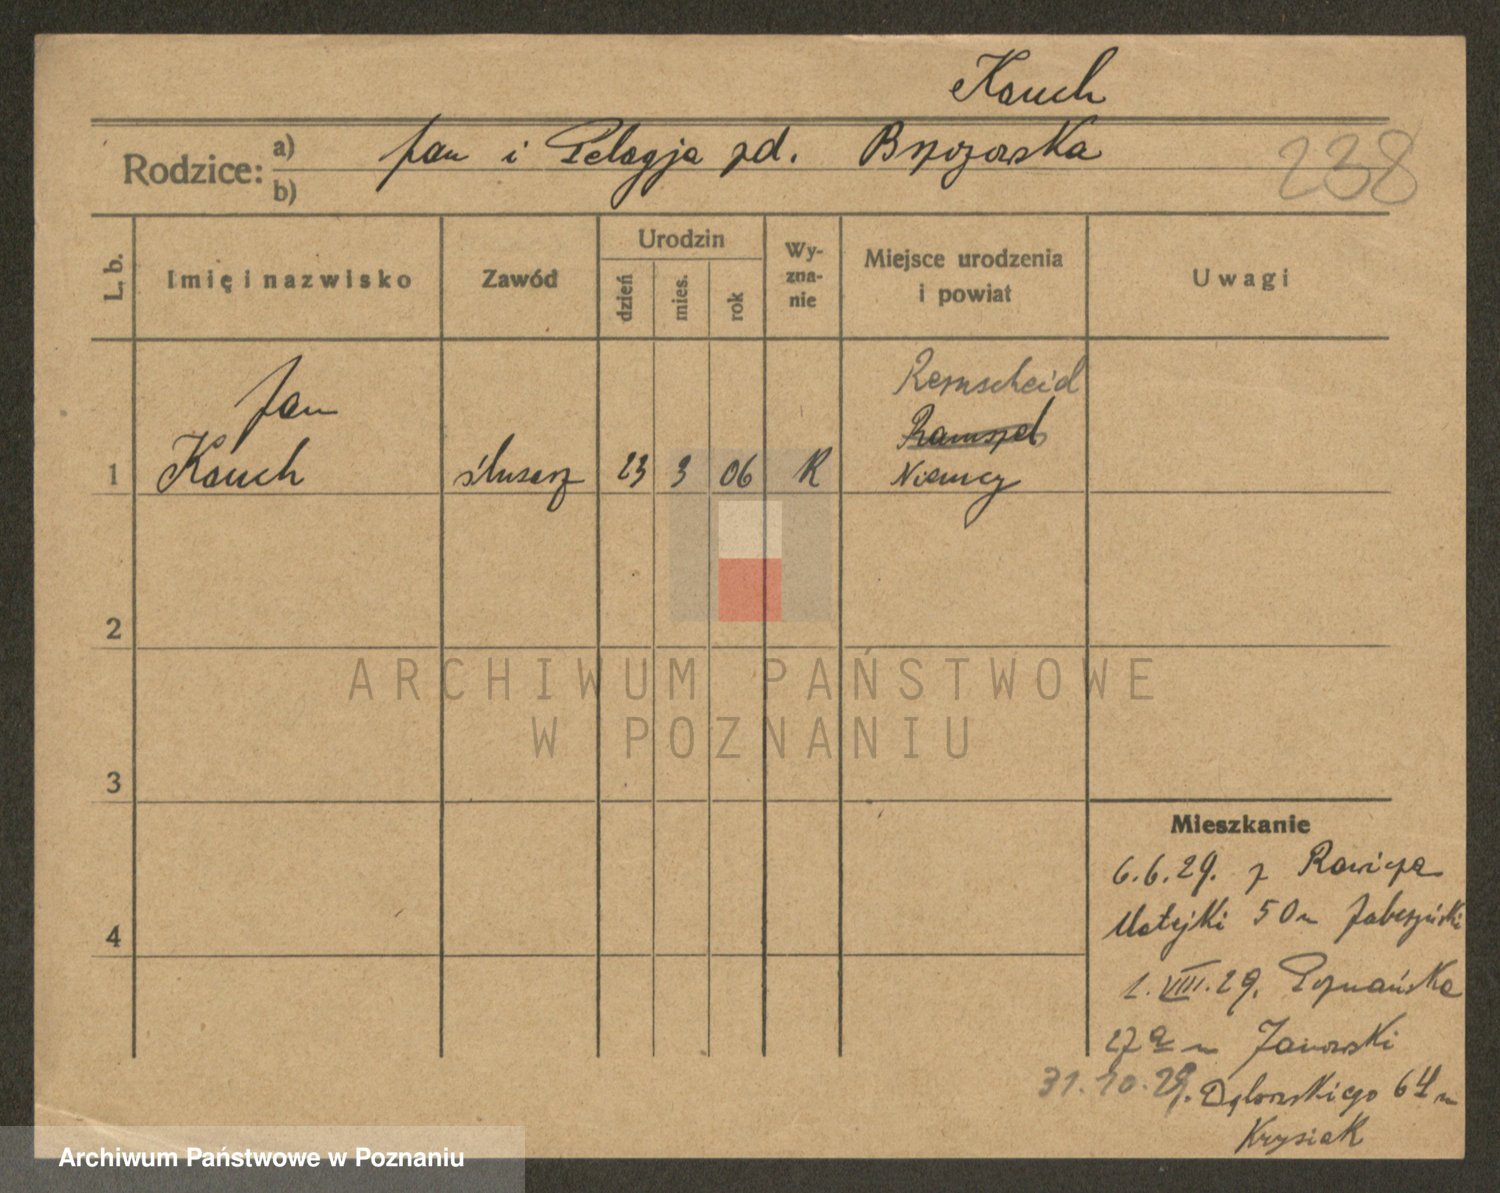 Kauch
Rodzice: a) Jan i Pelagja zd. Brzozowska
b)
238
L. b.
Imię i nazwisko
Zawód
Urodzin
dzień
mies.
rok
Wy-
zna-
nie
Miejsce urodzenia
i powiat
Uwagi
Jan
Remscheid
1 Kauch ślusarz 23 3 06 R Niemcy
2
ARCHIWUM PAŃSTWOWE
W POZNANIU
3
Mieszkanie
6.6.29. z Rawicza
4 Matejki 50 u
1.VIII.29. Poznańska
27a u Janowski
31.10.29. Dąbrowskiego 64 u
Krysiak
Archiwum Państwowe w Poznaniu